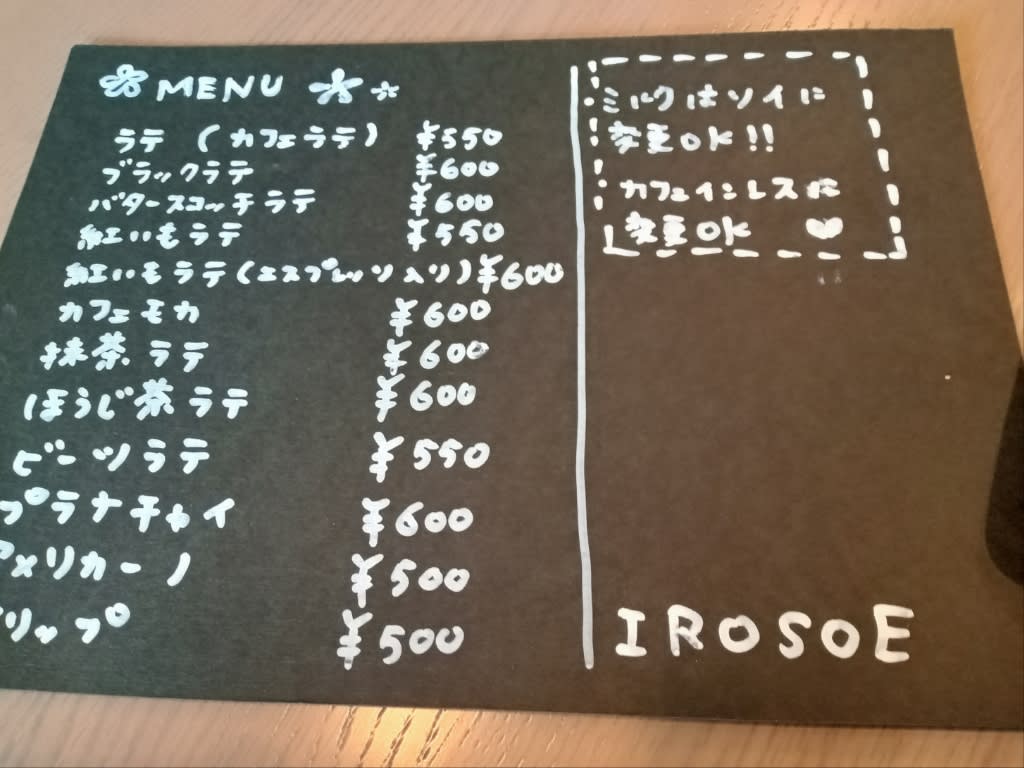 MENU
ラテ (カフェラテ) ¥550
ブラックラテ ¥600
バタースコッチラテ ¥600
紅いもラテ ¥550
紅いもラテ(エスプレッソ入り) ¥600
カフェモカ ¥600
抹茶ラテ ¥600
ほうじ茶ラテ ¥600
ビーツラテ ¥550
プラナチャイ ¥600
アメリカーノ ¥500
リップ ¥500
ミルクはソイに
変更OK!!
カフェインレスに
変更OK
IROSOE